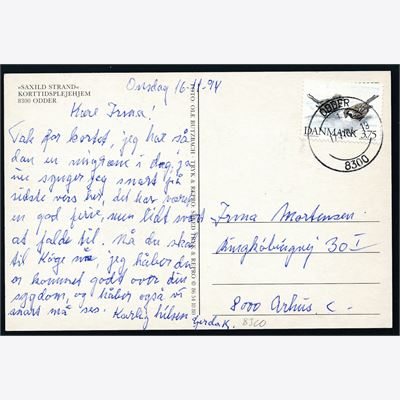 »SAXILD STRAND«
KORTTIDSPLEJEHJEM
8300 ODDER.
Onsdag 16-11-94
Kære Irma!
Tak for kortet, jeg har så-
dan en migræne i dag, ja
nu synger jeg snart på
sidste vers her, det har været
en god ferie, men lidt svært
at falde til. Nå du skal
til Køge nu, jeg håber du
er kommet godt over din
sygdom, og håber også vi
snart må ses. Kærlig hilsen
Gerda K.
8300
FOTO OLE BUTZBACH
TRYK & REPRO
DANMARK 3.75
ODDER
8300
Irma Mortensen
Ringkøbingvej 30 I
8000 Århus C.